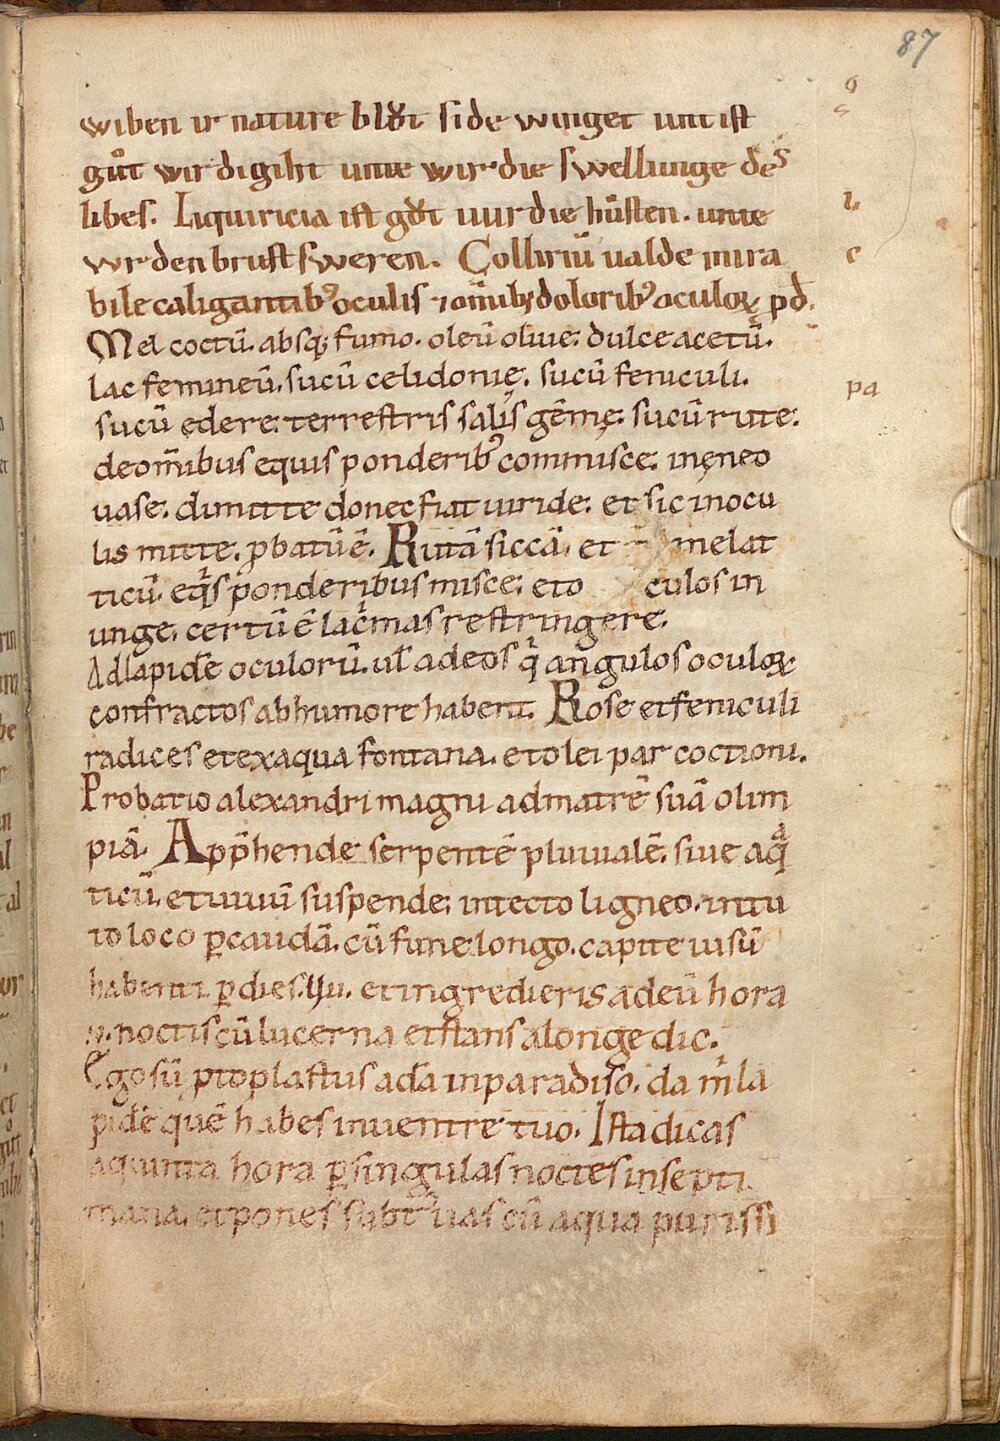 87
wiben ir nature blůt side winget unt ist
gůt wirdigiht unte wir die swellunge des
libes. Liquiricia ist gůt uur die hůsten. unte
wrden brustsweren. Colliriū ualde mira
bile caligantib᾽ oculis ⁊ om̄ib; dolorib᾽ oculoꝝ ꝓd.
Mel coctū. absq; fumo. oleū oliue. dulce acetū.
lac femineū. sucū celidonię. sucū feniculi.
sucū edere. terrestris salis gēmę. sucū rute.
de om̄ibus equis ponderib᾽ commisce. in ęneo
uase. dimitte donec fiat uiride. et sic in ocu
lis mitte. ꝓbatū ē. Rutā siccā. et mel at
ticū. eqͥs ponderibus misce. et oculos in
unge. certū ē lacͥmas restringere.
Ad lapidē oculorū. ul̄ ad eos qͥ angulos oculoꝝ
confractos ab humore habent. Rose et feniculi
radices et ex aqua fontana. et olei par coctioni.
Probatio alexandri magni ad matrē suā olim
piā. App̄hende serpentē pluuialē. siue aqͣ
ticū. et uiuū suspende. in tecto ligneo. in tu
to loco ꝑ caudā. cū fune longo. capite uisū
habenti ꝑ dies. et ingredieris ad eū hora
v. noctis cū lucerna et stans a longe dic.
Ego sū ꝓtoplastus adā in paradiso. da m̍ la
pidē quē habes in uentre tuo. Ista dicas
a quinta hora ꝑ singulas noctes in septi
mana. et pones subt᾽ uas cū aqua purissi
g
l
c
pa